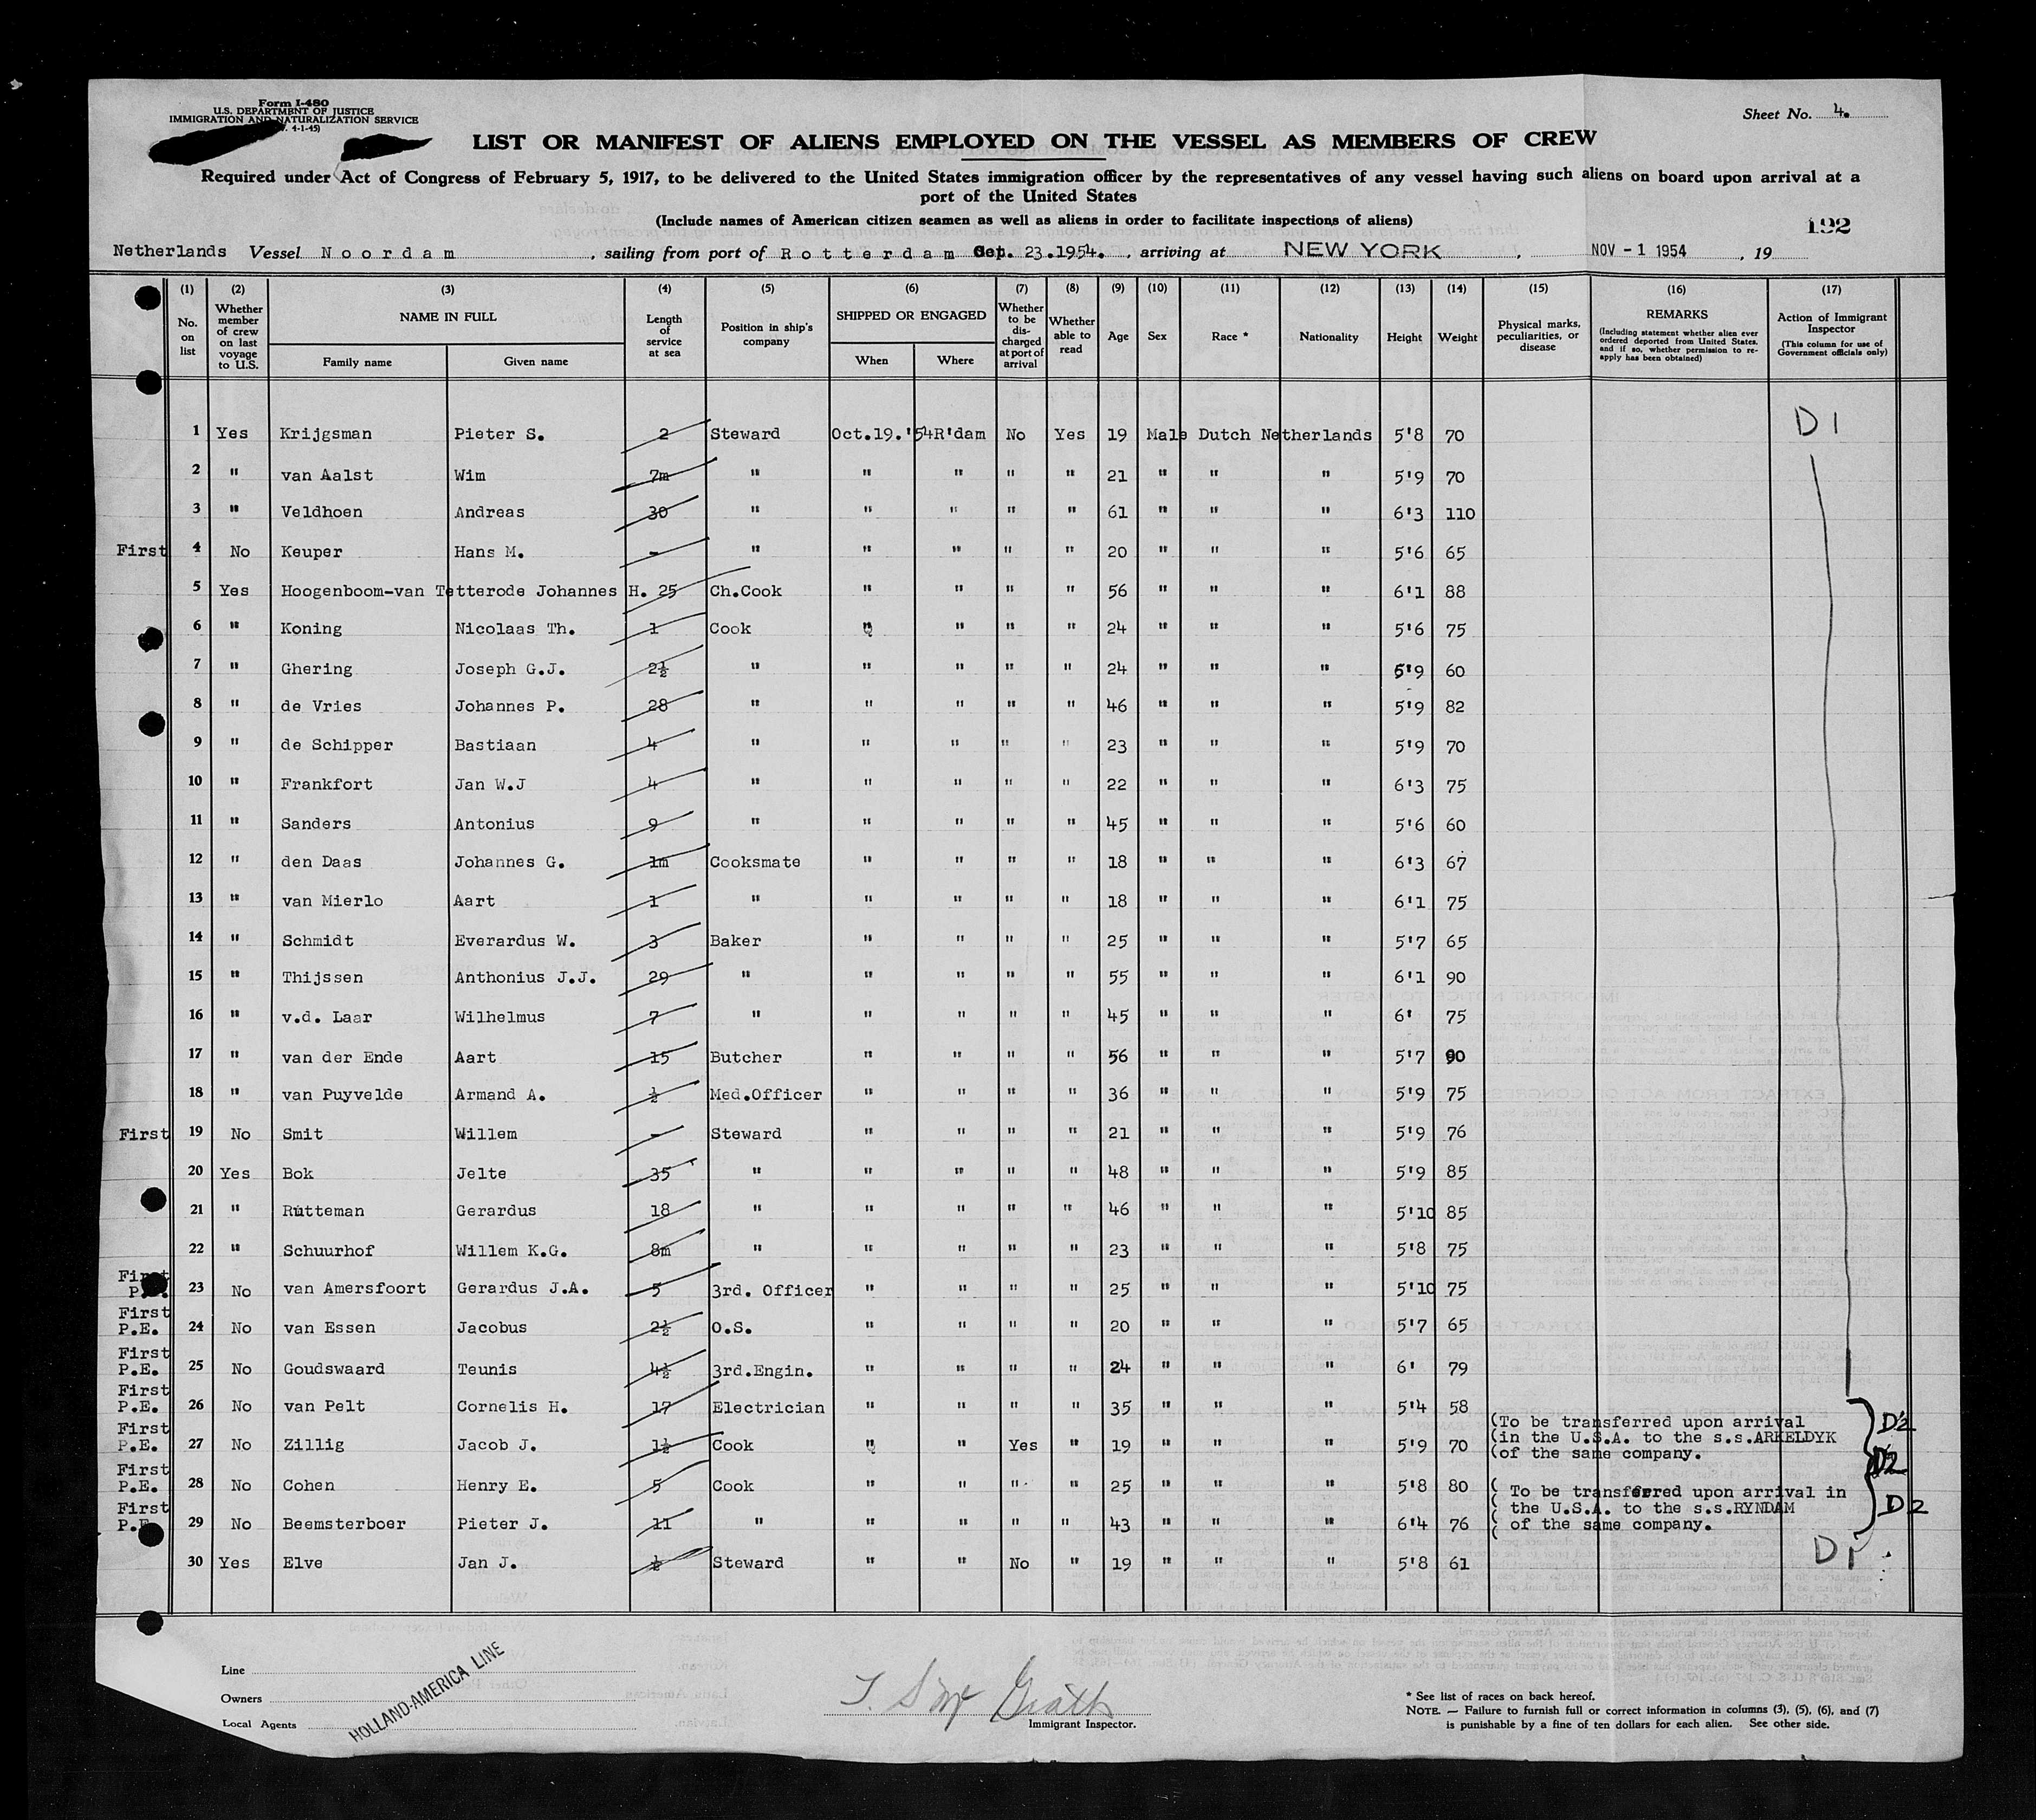 Form I-480
U.S. DEPARTMENT OF JUSTICE
IMMIGRATION AND NATURALIZATION SERVICE
4-1-45)
Sheet No. 4.
LIST OR MANIFEST OF ALIENS EMPLOYED ON THE VESSEL AS MEMBERS OF CREW
Required under Act of Congress of February 5, 1917, to be delivered to the United States immigration officer by the representatives of any vessel having such aliens on board upon arrival at a
port of the United States
(Include names of American citizen seamen as well as aliens in order to facilitate inspections of aliens)
192
Netherlands Vessel Noordam, sailing from port of Rotterdam 23.1954., arriving at NEW YORK, NOV - 1 1954, 19
(1) (2) (3) (4) (5) (6) (7) (8) (9) (10) (11) (12) (13) (14) (15) (16) (17)
No. on list
Whether member of crew on last voyage to U.S.
NAME IN FULL
Family name Given name
Length of service at sea
Position in ship's company
SHIPPED OR ENGAGED
When Where
Whether to be dis- charged at port of arrival
Whether able to read
Age Sex Race * Nationality Height Weight
Physical marks, peculiarities, or disease
REMARKS
(Including statement whether alien ever ordered deported from United States, and if so, whether permission to re- apply has been obtained)
Action of Immigrant Inspector
(This column for use of Government officials only)
1 Yes Krijgsman Pieter S. 2 Steward Oct.19.'54 R'dam No Yes 19 Male Dutch Netherlands 5'8 70 D1
2 " van Aalst Wim 7m " " " " " 21 " " " 5'9 70
3 " Veldhoen Andreas 30 " " " " " 61 " " " 6'3 110
First 4 No Keuper Hans M. - " " " " " 20 " " " 5'6 65
5 Yes Hoogenboom-van Tetterode Johannes H. 25 Ch.Cook " " " " 56 " " " 6'1 88
6 " Koning Nicolaas Th. 1 Cook " " " " 24 " " " 5'6 75
7 " Ghering Joseph G.J. 2½ " " " " " 24 " " " 5'9 60
8 " de Vries Johannes P. 28 " " " " " 46 " " " 5'9 82
9 " de Schipper Bastiaan 4 " " " " " 23 " " " 5'9 70
10 " Frankfort Jan W.J 4 " " " " " 22 " " " 6'3 75
11 " Sanders Antonius 9 " " " " " 45 " " " 5'6 60
12 " den Daas Johannes G. 1m Cooksmate " " " " 18 " " " 6'3 67
13 " van Mierlo Aart 1 " " " " " 18 " " " 6'1 75
14 " Schmidt Everardus W. 3 Baker " " " " 25 " " " 5'7 65
15 " Thijssen Anthonius J.J. 29 " " " " " 55 " " " 6'1 90
16 " v.d. Laar Wilhelmus 7 " " " " " 45 " " " 6' 75
17 " van der Ende Aart 15 Butcher " " " " 56 " " " 5'7 90
18 " van Puyvelde Armand A. ½ Med.Officer " " " " 36 " " " 5'9 75
First 19 No Smit Willem - Steward " " " " 21 " " " 5'9 76
20 Yes Bok Jelte 35 " " " " " 48 " " " 5'9 85
21 " Rutteman Gerardus 18 " " " " " 46 " " " 5'10 85
22 " Schuurhof Willem K.G. 8m " " " " " 23 " " " 5'8 75
First
P. 23 No van Amersfoort Gerardus J.A. 5 3rd. Officer " " " " 25 " " " 5'10 75
First
P.E. 24 No van Essen Jacobus 2½ O.S. " " " " 20 " " " 5'7 65
First
P.E. 25 No Goudswaard Teunis 4½ 3rd.Engin. " " " " 24 " " " 6' 79
First
P.E. 26 No van Pelt Cornelis H. 17 Electrician " " " " 35 " " " 5'4 58
First
P.E. 27 No Zillig Jacob J. 1½ Cook " " Yes " 19 " " " 5'9 70
(To be transferred upon arrival
(in the U.S.A. to the s.s.ARKELDYK
(of the same company.
D2
D2
First
P.E. 28 No Cohen Henry E. 5 Cook " " " " 25 " " " 5'8 80
( To be transferred upon arrival in
( the U.S.A. to the s.s.RYNDAM
( of the same company.
D2
First
P.E. 29 No Beemsterboer Pieter J. 11 " " " " " 43 " " " 6'4 76
30 Yes Elve Jan J. ½ Steward " " No " 19 " " " 5'8 61 D1
Line
Owners
Local Agents
HOLLAND-AMERICA LINE
Immigrant Inspector.
* See list of races on back hereof.
NOTE. — Failure to furnish full or correct information in columns (3), (5), (6), and (7)
is punishable by a fine of ten dollars for each alien. See other side.